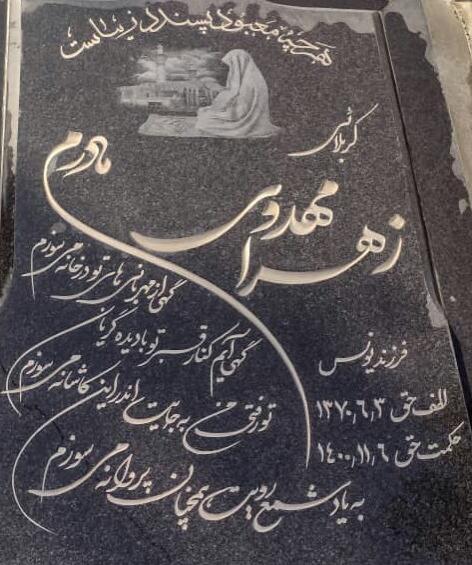 هر چه معبود پسندد زیباست
کربلائی
مادرم
زهرا مهدوی
گهی از مهربانی های تو در خانه می سوزم
گهی آیم کنار قبر تو با دیده گریان
تو رفتی من به جایت اندر این کاشانه می سوزم
به یاد شمع رویت همچنان پروانه می سوزم
فرزند یونس
الف حق ۱۳۷۰,۶,۳
حکمت حق ۱۴۰۰,۱۱,۶